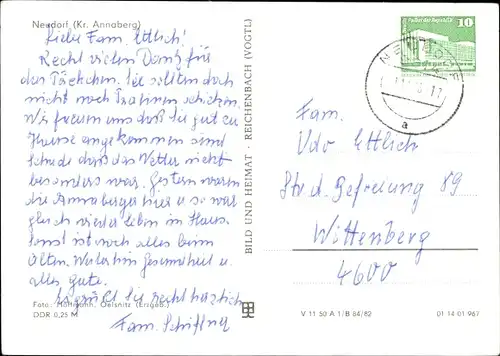 Neudorf (Kr. Annaberg)
Liebe Fam. Ettlich!
Recht vielen Dank für
das Päckchen. Sie sollten doch
nicht noch schicken.
Wir freuen uns daß Sie gut zu
Hause angekommen sind
schade daß das Wetter nicht
besonders war. Gestern waren
die Annaberger hier u. so war
gleich wieder Leben im Haus
sonst ist noch alles beim
Alten. Weiterhin Gesundheit u.
alles Gute.
Es grüßt Sie recht herzlich
Fam. Schiffner
Foto: Hoffmann, Oelsnitz (Erzgeb.)
DDR 0,25 M
BILD UND HEIMAT · REICHENBACH (VOGTL)
Palast der Republik
10
NEUDORF
a
Fam.
Udo Ettlich
Str. d. Befreiung 89
Wittenberg
4600
V 11 50 A 1/B 84/82
01 14 01 967